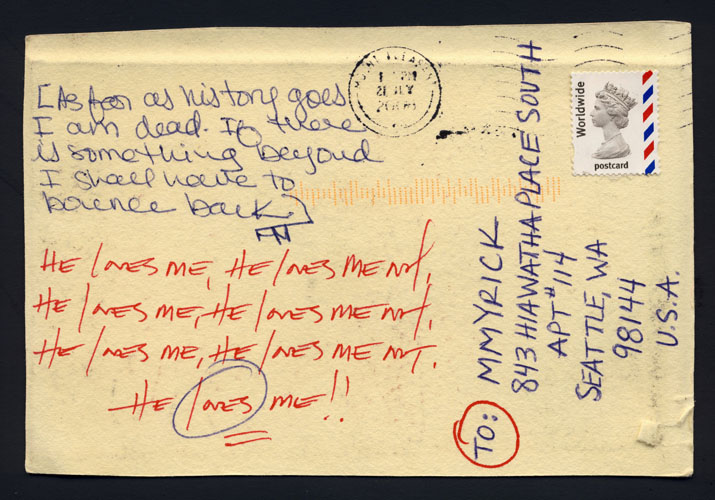 [As far as history goes
I am dead. If there
is something beyond
I shall have to
bounce back.]
HE loves ME, HE loves ME NOT,
HE loves ME, HE loves ME NOT,
HE loves ME, HE loves ME NOT.
HE loves ME!!
MOUNT PLEASANT
Worldwide
postcard
TO:
M MYRICK
843 HIAWATHA PLACE SOUTH
APT #114
SEATTLE, WA
98144
U.S.A.